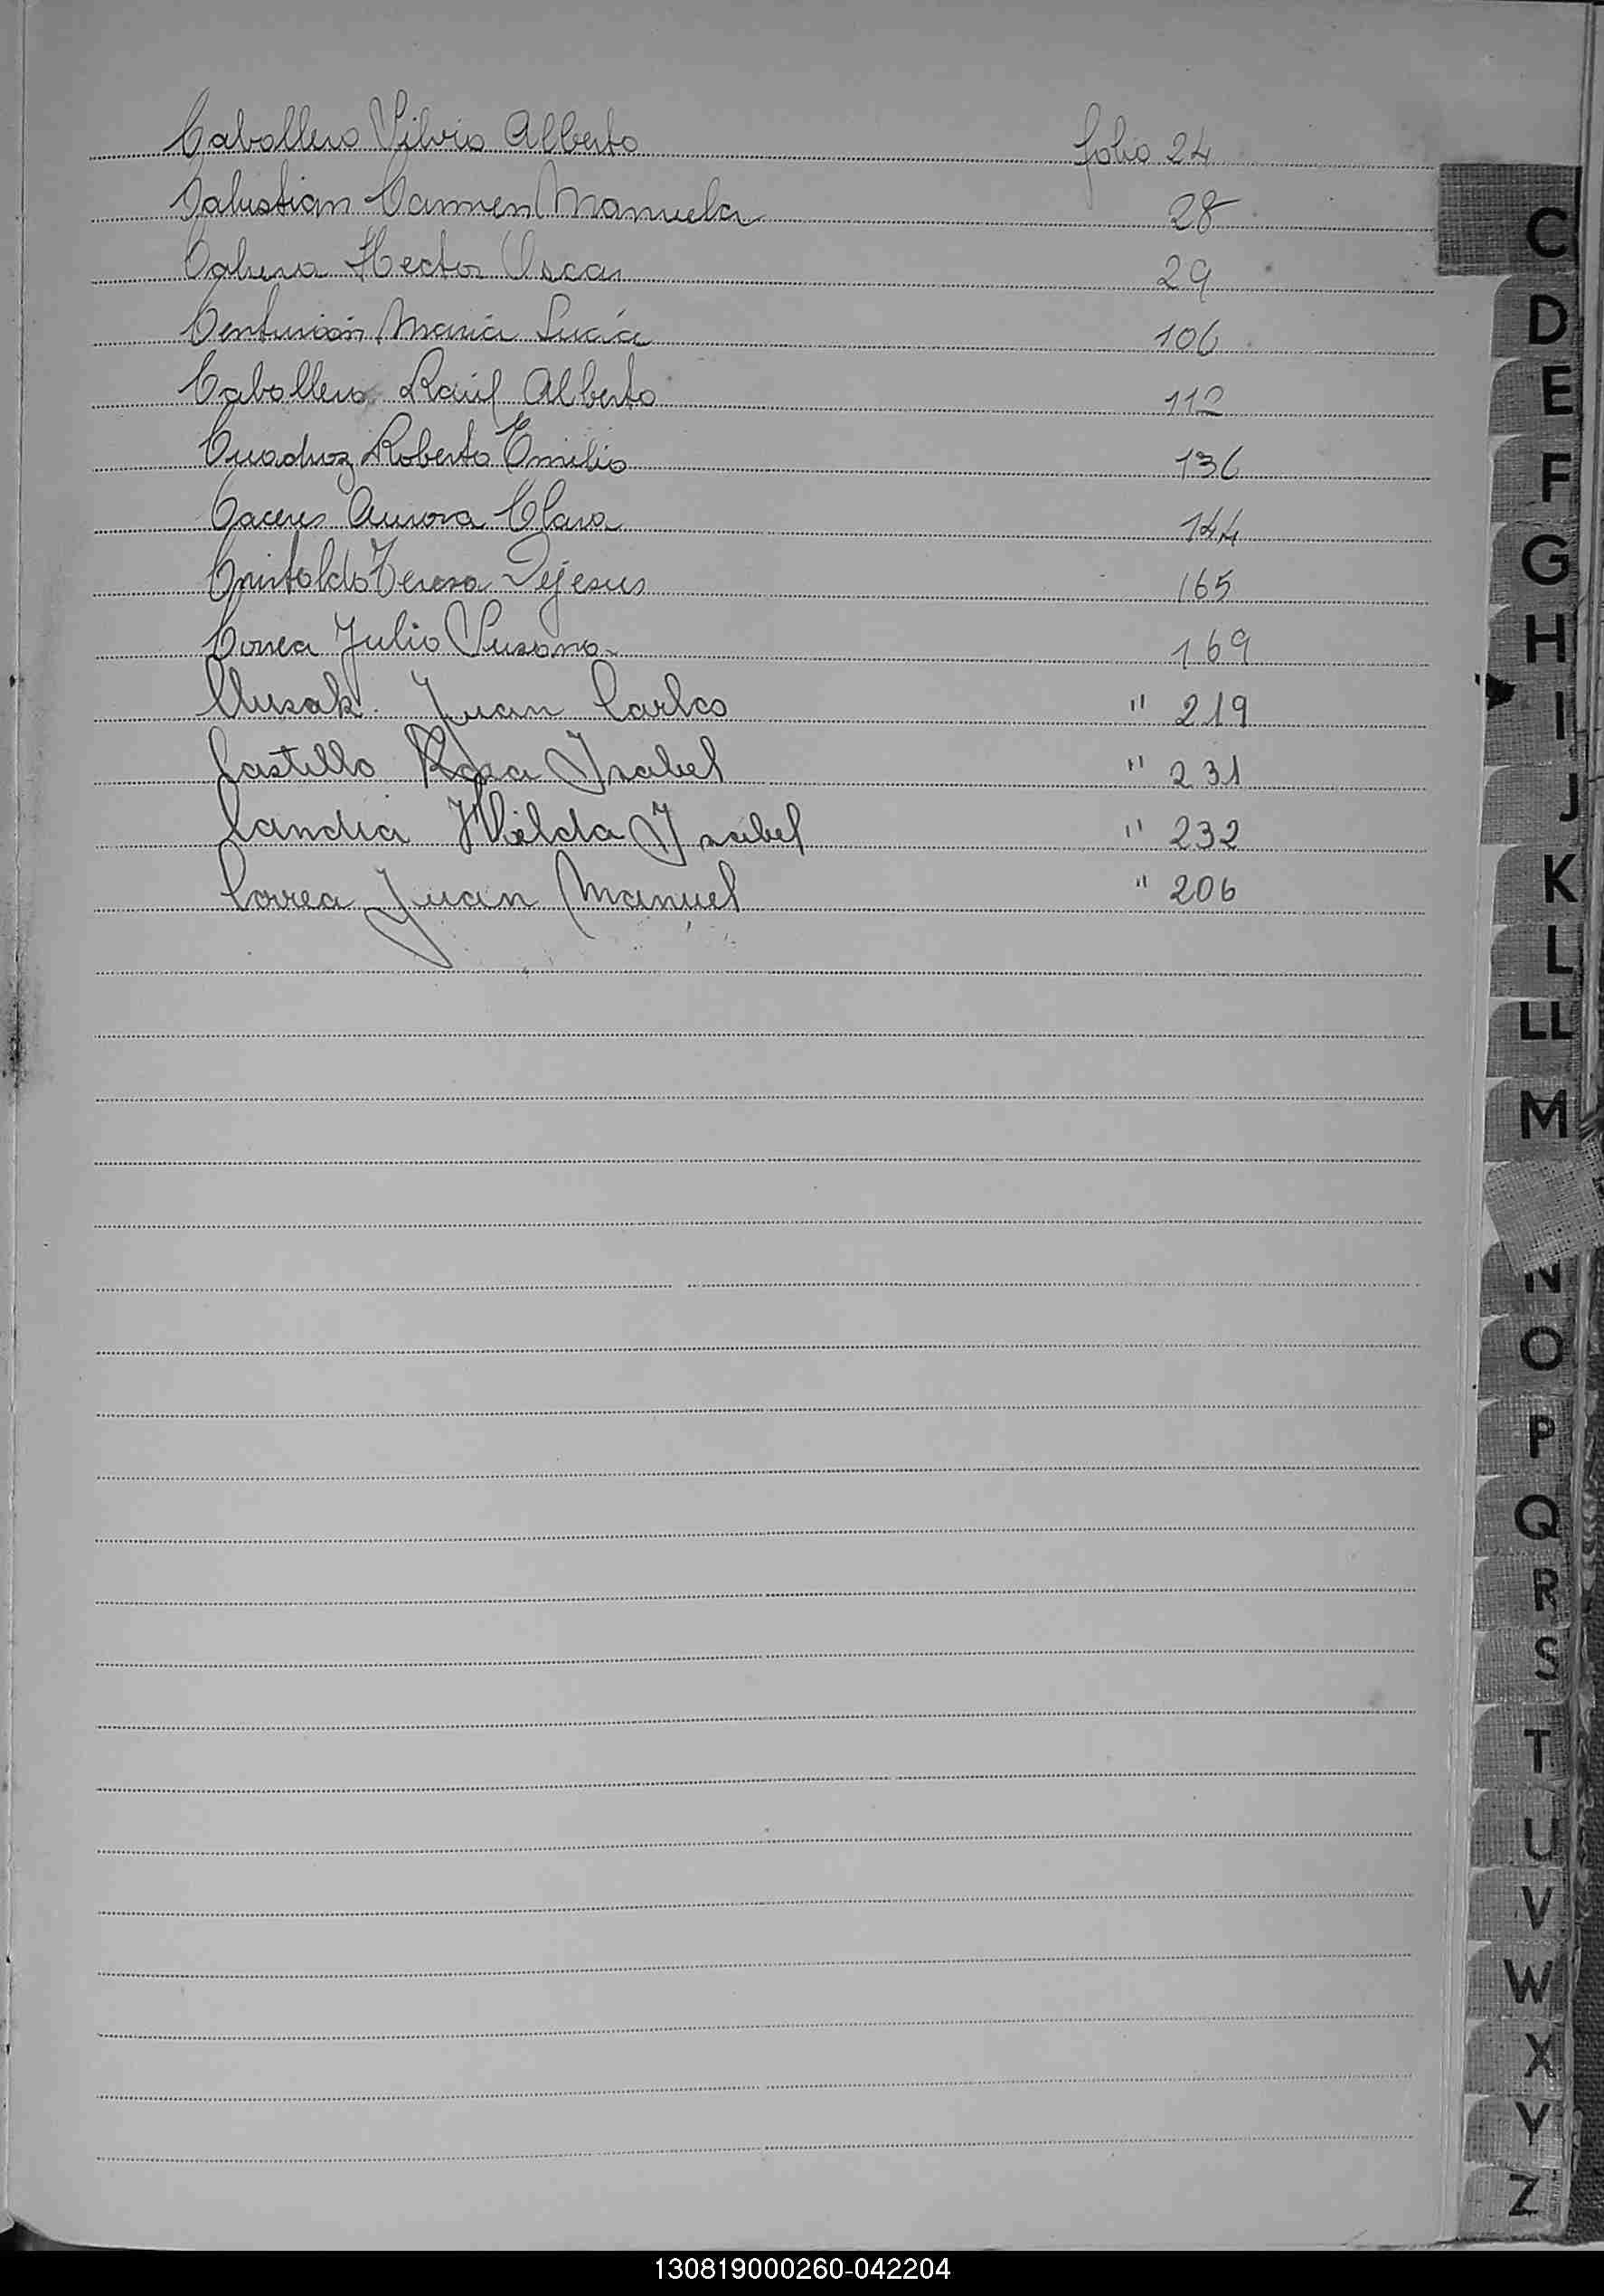 Caballero Silvio Alberto folio 24
Calustian Carmen Manuela 28
Cabrera Hector Oscar 29
Centurión María Lucía 106
Caballero Raúl Alberto 112
Cuadroz Roberto Emilio 136
Caceres Aurora Clara 144
Cristaldo Teresa Dejesus 165
Correa Julio Susano 169
Clusak Juan Carlos " 219
Castillo Rosa Isabel " 231
Candia Hilda Isabel " 232
Correa Juan Manuel " 206
C
D
E
F
G
H
I
J
K
L
LL
M
N
O
P
Q
R
S
T
U
V
W
X
Y
Z
130819000260-042204